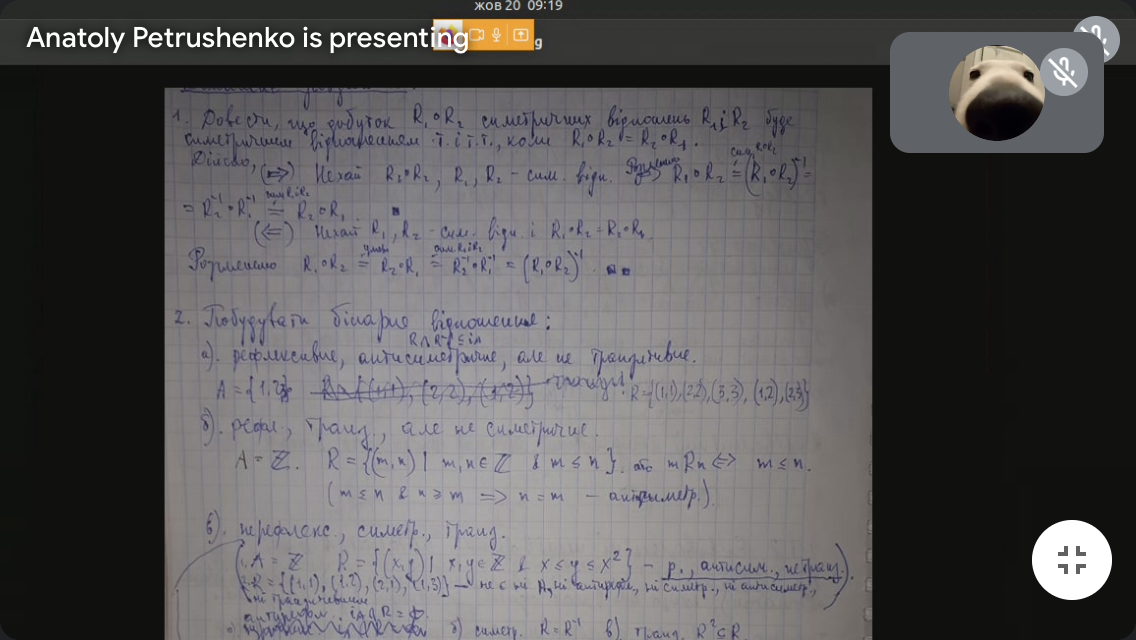 жов 20 09:19
Anatoly Petrushenko is presenting
1. Довести, що добуток R₁∘R₂ симетричних відношень R₁ і R₂ буде
симетричним відношенням т. і т.т., коли R₁∘R₂ = R₂∘R₁.
Дійсно, (⇒) Нехай R₁∘R₂, R₁, R₂ - сим. відн. Розглянемо R₁∘R₂ = (R₁∘R₂)⁻¹ =
= R₂⁻¹∘R₁⁻¹ = R₂∘R₁ ▪
(⇐) Нехай R₁, R₂ - сим. відн. і R₁∘R₂ = R₂∘R₁.
Розглянемо R₁∘R₂ = R₂∘R₁ = R₂⁻¹∘R₁⁻¹ = (R₁∘R₂)⁻¹. ▪▪
2. Побудувати бінарне відношення:
R∩R⁻¹⊆iA
а). рефлексивне, антисиметричне, але не транзитивне.
R={(1,1),(2,2),(3,3),(1,2),(2,3)}
б). рефл., транз., але не симетричне.
A = ℤ. R = {(m,n) | m,n∈ℤ & m ≤ n}. або mRn ⇔ m ≤ n.
(m ≤ n & n ≥ m ⟹ n = m – антисиметр.).
в). нерефлекс., симетр., транз.
A = ℤ R = {(x,y) | x,y∈ℤ & x ≤ y ≤ x²} – р., антисим., нетранз.).
R = {(1,1),(1,2),(2,1),(1,3)} – не є ні ні антирефл., ні симетр., ні антисиметр.,
ні транзитивним
iA∩R = ∅.
б) симетр. R=R⁻¹ в) транз. R²⊆R